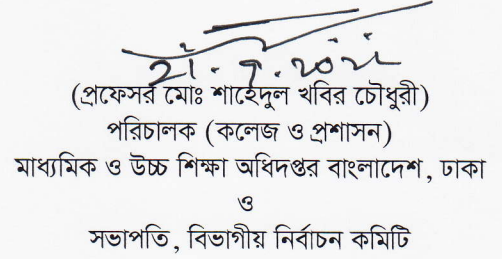 (প্রফেসর মোঃ শাহেদুল খবির চৌধুরী)
পরিচালক (কলেজ ও প্রশাসন)
মাধ্যমিক ও উচ্চ শিক্ষা অধিদপ্তর বাংলাদেশ, ঢাকা
ও
সভাপতি, বিভাগীয় নির্বাচন কমিটি